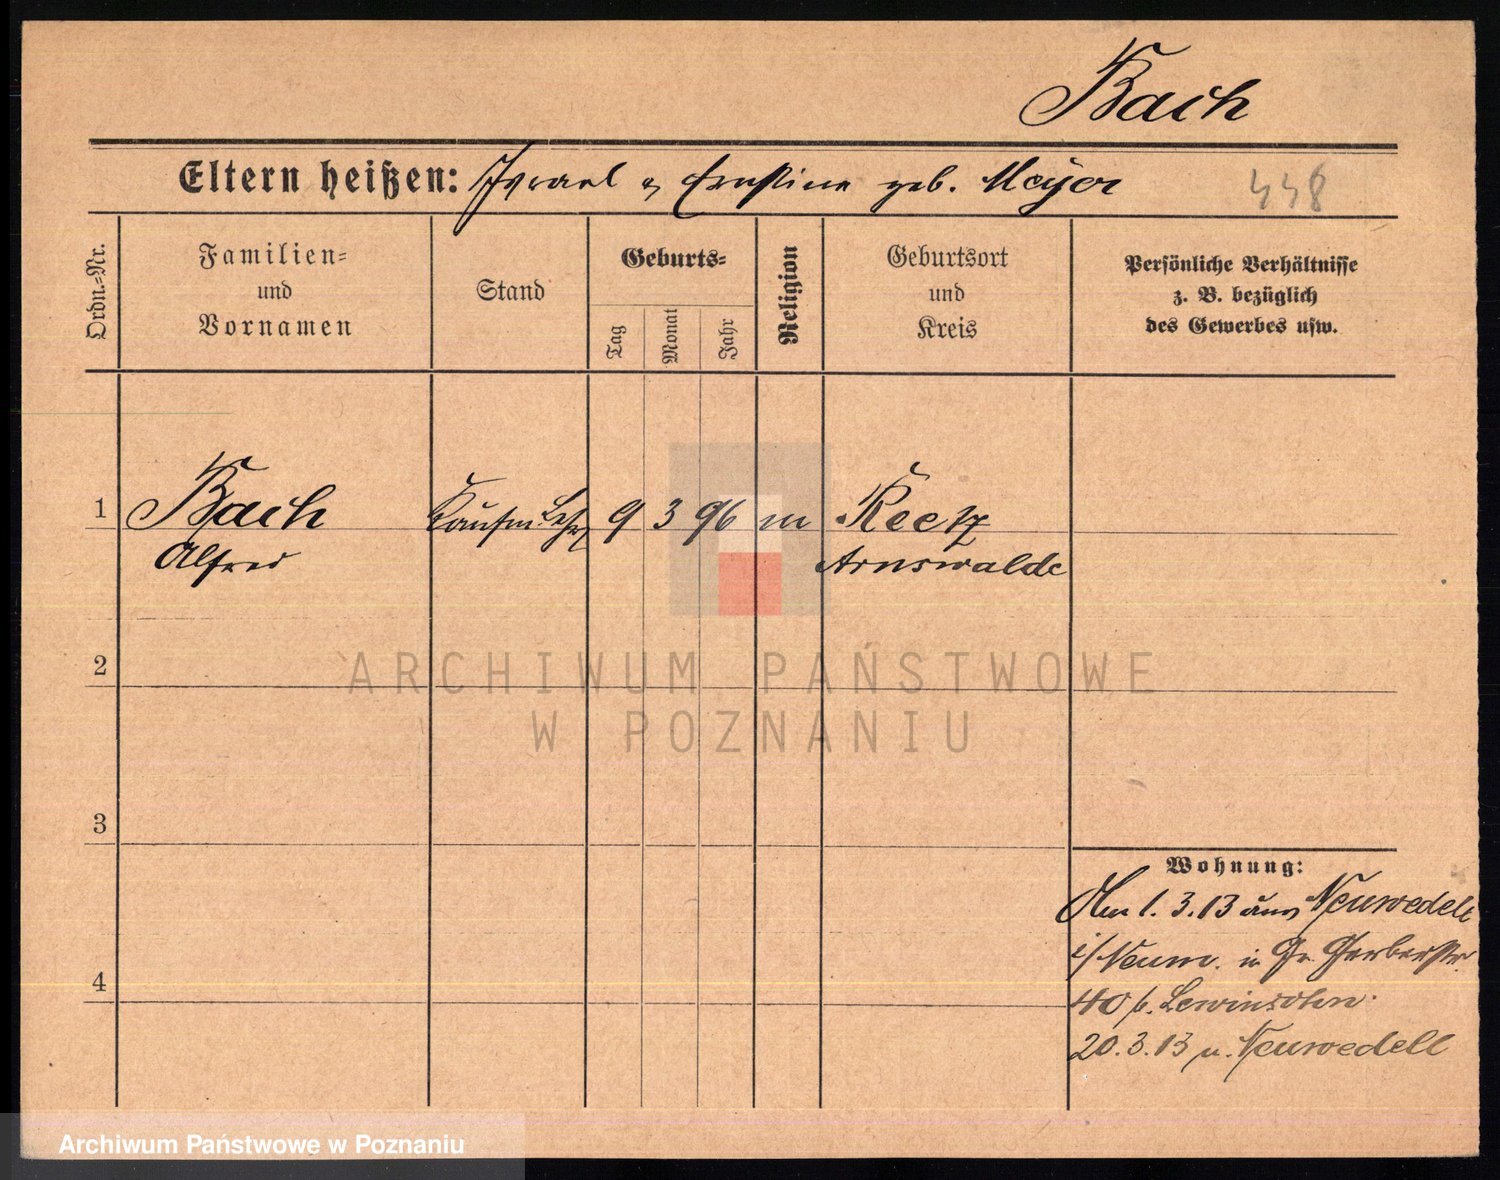 Bach
Eltern heißen: Israel u Ernstine geb. Meyer
448
Ordn.-Nr.
Familien-
und
Vornamen
Stand
Geburts-
Tag
Monat
Jahr
Religion
Geburtsort
und
Kreis
Persönliche Verhältnisse
z. B. bezüglich
des Gewerbes usw.
1 Bach Kaufm. 9 3 96 m Reetz
Alfred Arnswalde
2
ARCHIWUM PAŃSTWOWE
W POZNANIU
3
Wohnung:
Am 1. 3. 13 aus Neuwedell
i/ Neum. in Gr. Gerberstr.
4
40 b. Lewinsohn.
20. 3. 13 n. Neuwedell
Archiwum Państwowe w Poznaniu